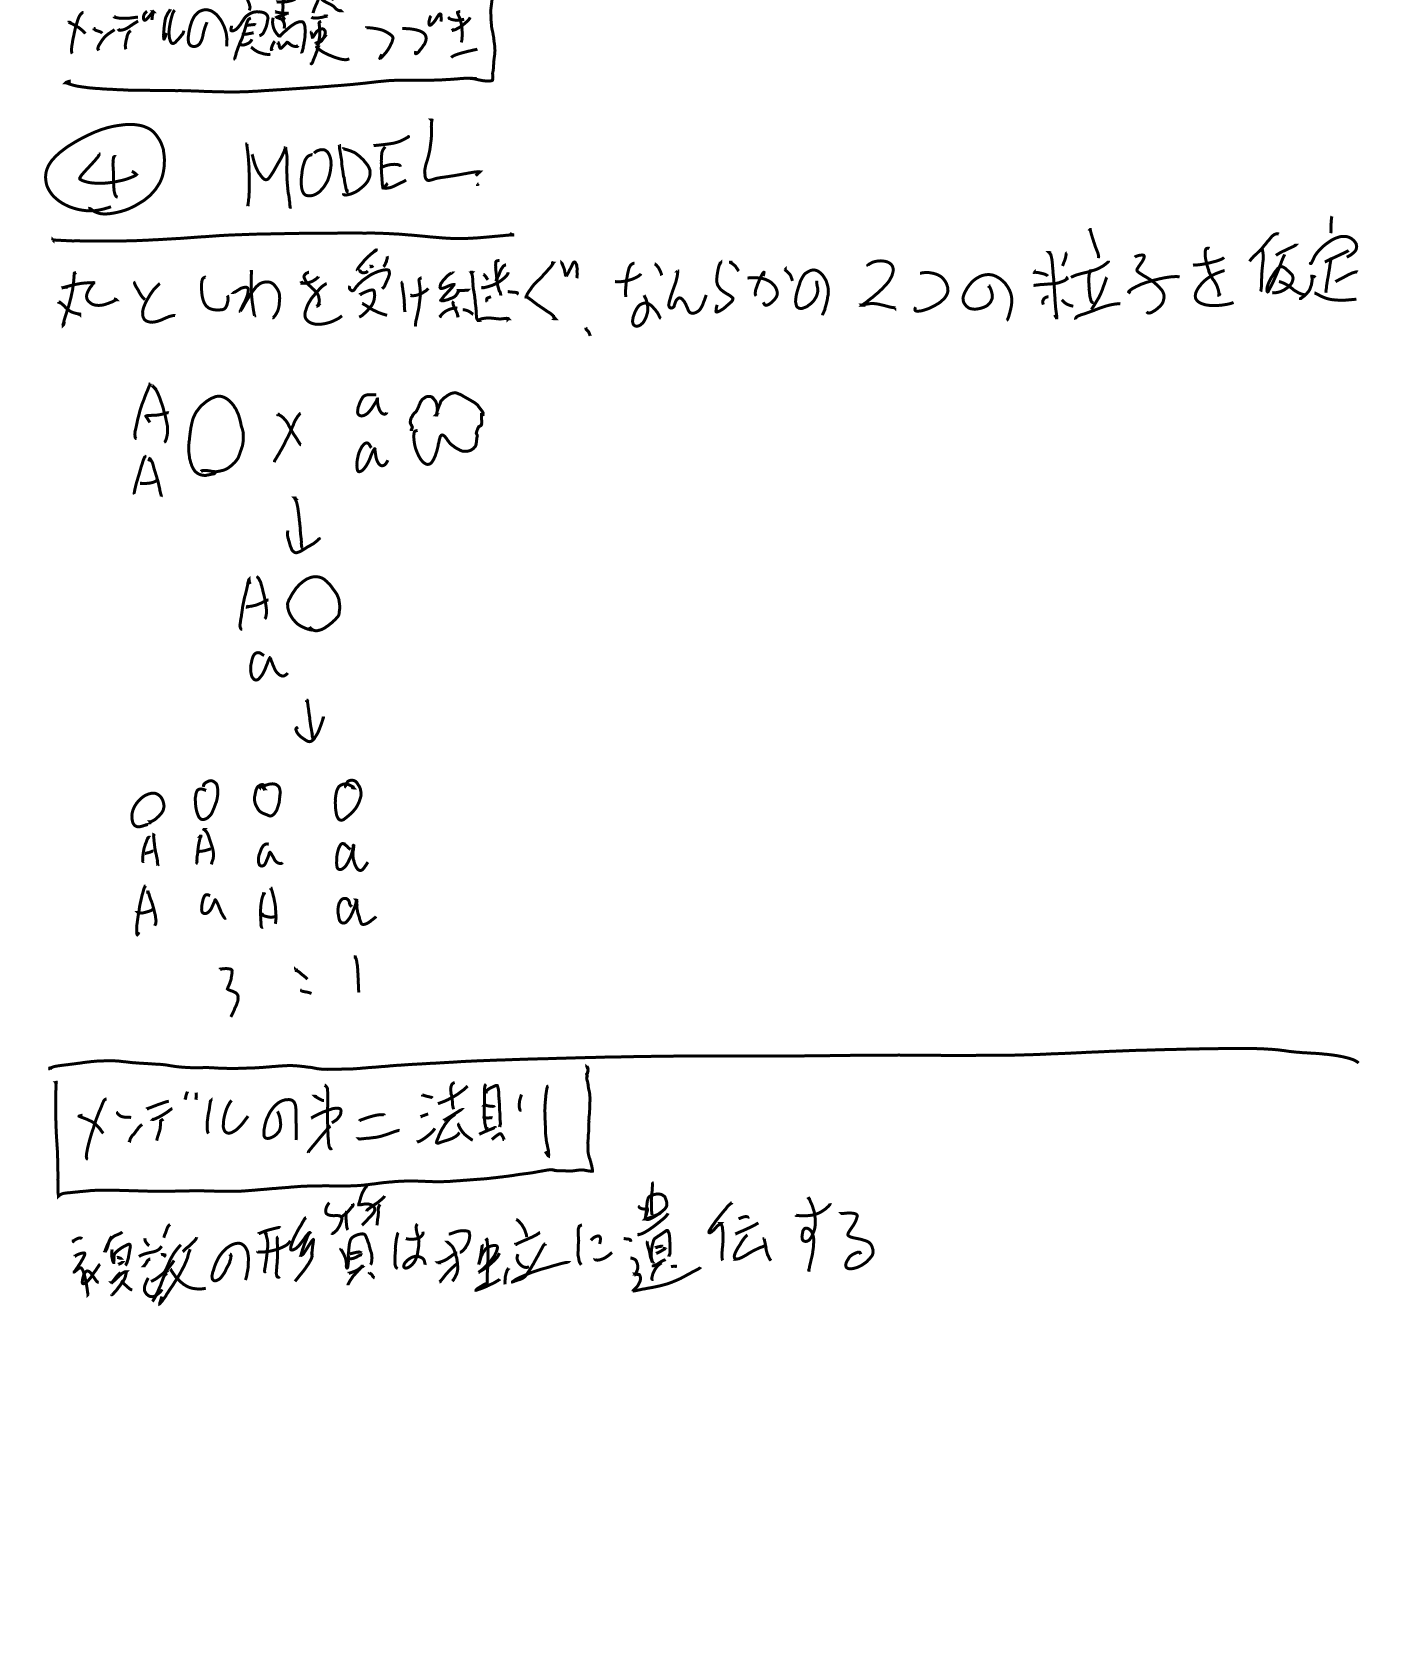 メンデルの実験つづき
④ MODEL
丸としわを受け継ぐ、なんらかの2つの粒子を仮定
A × a
A a
A
a
A A a a
A a A a
3 : 1
メンデルの第二法則
複数の形質は独立に遺伝する